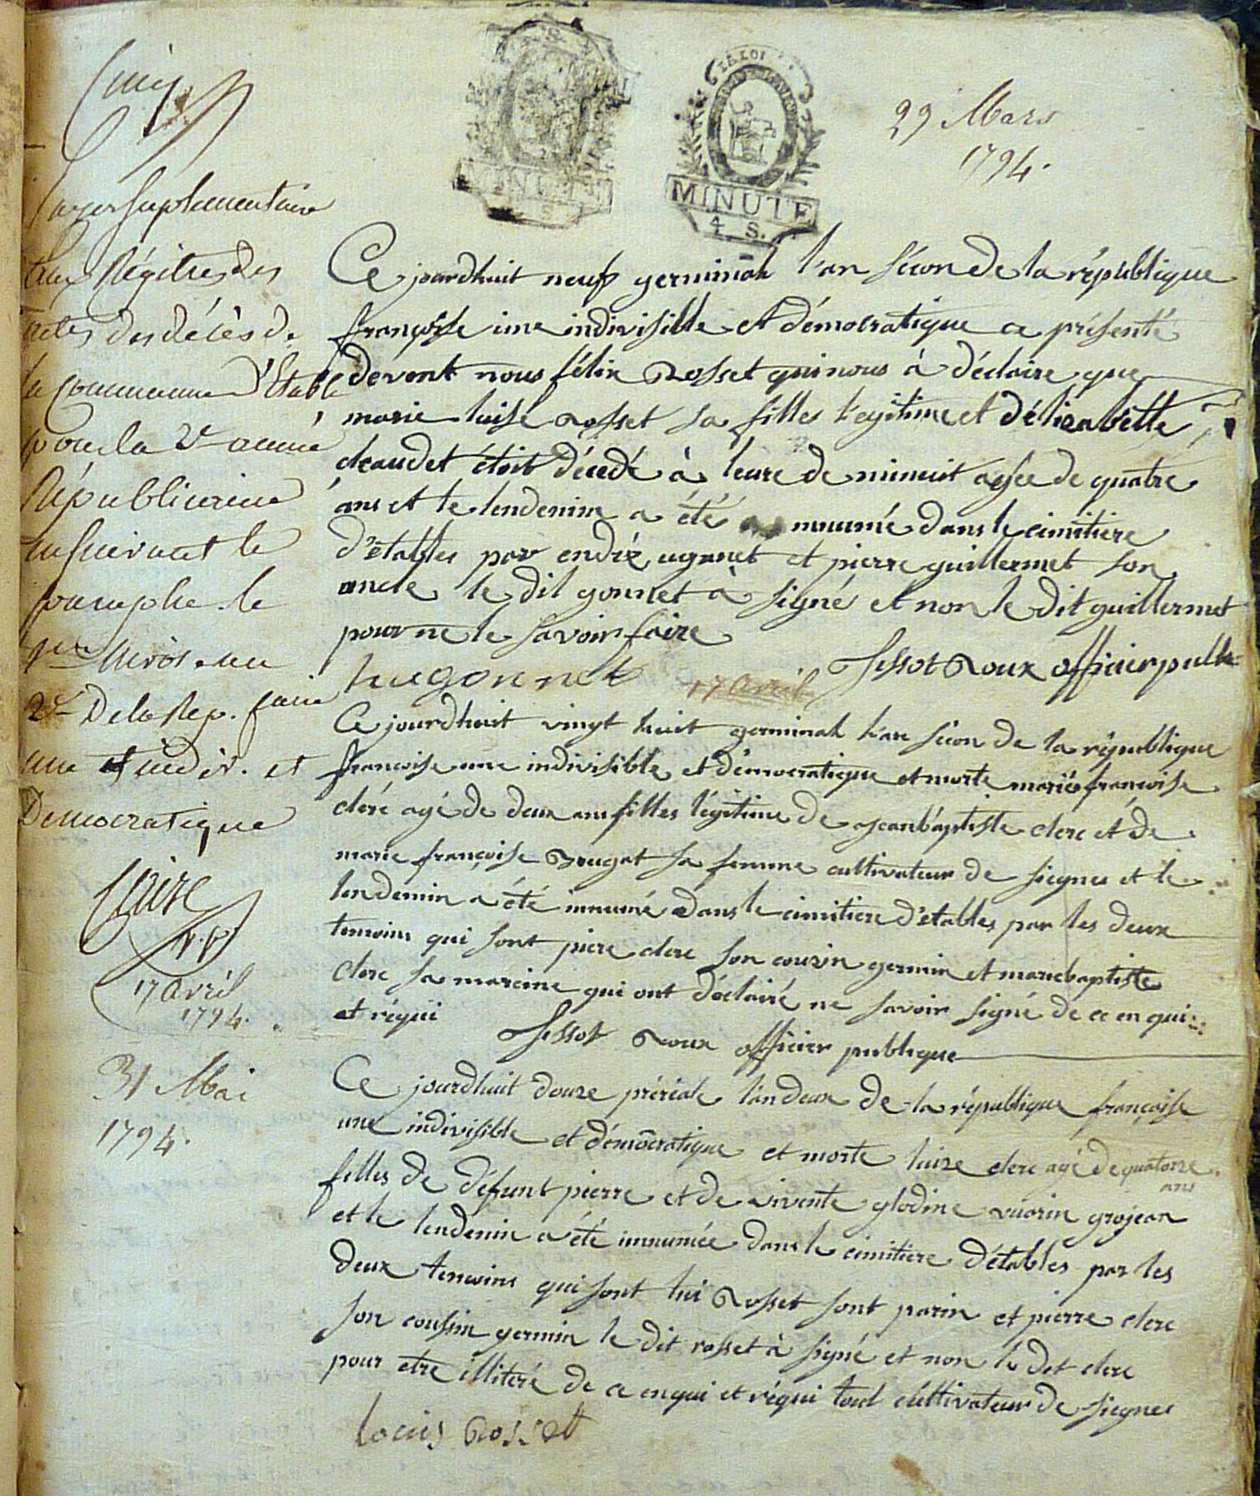 29 Mars
1794.
MINUTE
4. S.
MINUTE
suplementaire
aux Régitres des
actes des décès de
la commune d'Etable
pour la 2e année
Républicaine
ensuivant le
paraphe le
nivos. an
2e De la Rep. fcaise
une et indiv. et
Democratique
17 avril
1794.
31 Mai
1794.
Ce jourdhuit neuf germinal l'an sécon de la république
françoise une indivisible et démocratique a présenté
devent nous félix Rosset qui nous à déclaire que
marie luise rosset sa filles légitime et d'élizabette
claudet étoit décedé à leure de minuit agée de quatre
ans et le lendemin a été innumé dans le cimitiere
d'étables par ugonet et pierre guillermet son
oncle le dit gonnet à signé et non le dit guillermet
pour ne le savoir faire
hugonnet
Roux officier publi
17 avril
Ce jourdhuit vingt huit germinal l'an sécon de la république
françoise une indivisible et démocratique et morte marie françoise
clerc agé de deux ans filles légitime de jeanbaptiste clerc et de
marie françoise sa femme cultivateur de siegnes et le
lendemin a été innumé dans le cimitiere d'étables par les deux
temoins qui sont piere clerc son couzin germin et mariebaptiste
clerc sa mareine qui ont déclairé ne savoir signé de ce enqui
et réqui
Roux officier publique
Ce jourdhuit douze prérial l'an deux de la république françoise
une indivisible et démocratique et morte luize clerc agé de quatorze
ans
filles de défunt pierre et de vivente glodine vuarin grojean
et le lendemin a été innumée dans le cimitiere d'étables par les
deux temoins qui sont lui Rosset sont parin et pierre clerc
son coussin germin le dit rosset à signé et non le dit clerc
pour etre illiteré de ce enqui et réqui tout cultivateur de siegnes
Louis Rosset